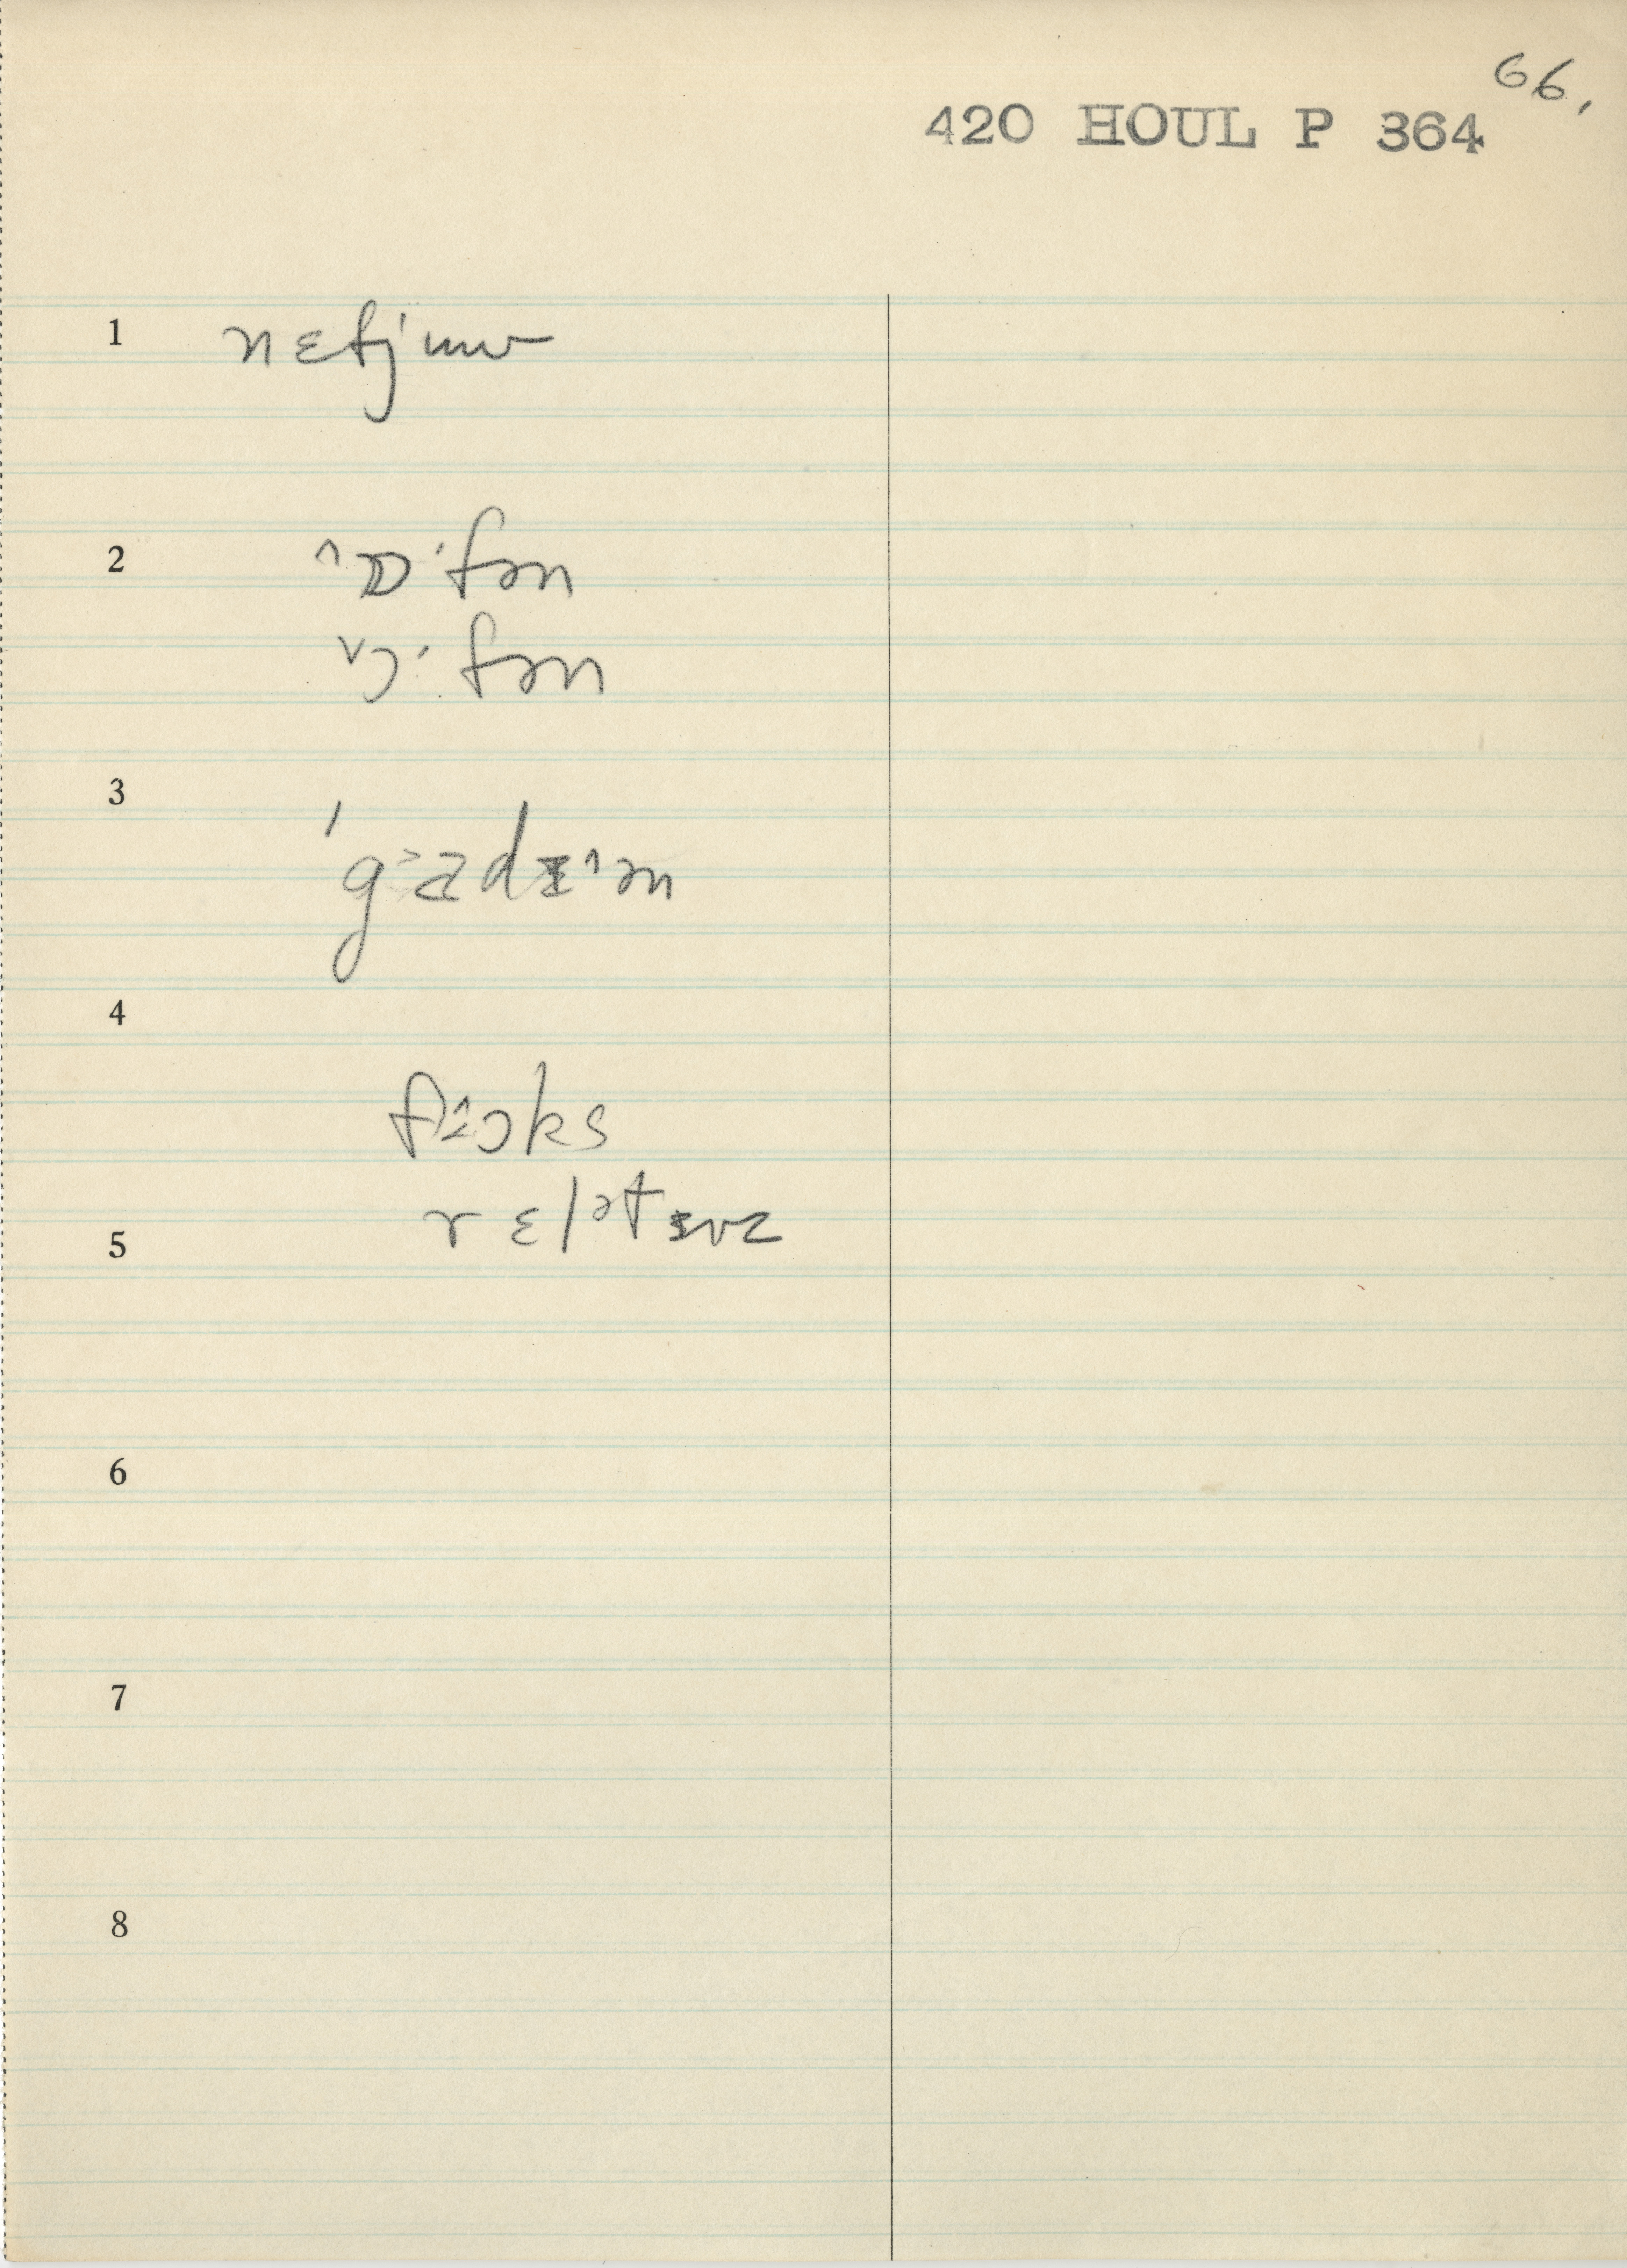 66.
420 HOUL P 364
1 nɛfjuw
2 ˄ɒ·fən
˅ɔ·fən
3
4
fɔks
5 rɛlətɪvz
6
7
8